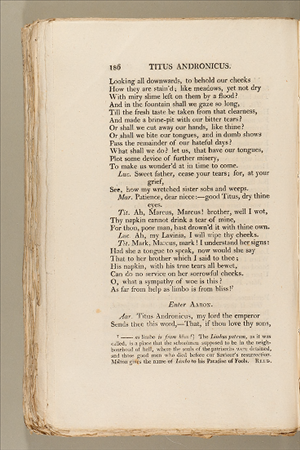 186 TITUS ANDRONICUS.
Looking all downwards, to behold our cheeks
How they are stain'd; like meadows, yet not dry
With miry slime left on them by a flood?
And in the fountain shall we gaze so long,
Till the fresh taste be taken from that clearness,
And made a brine-pit with our bitter tears?
Or shall we cut away our hands, like thine?
Or shall we bite our tongues, and in dumb shows
Pass the remainder of our hateful days?
What shall we do? let us, that have our tongues,
Plot some device of further misery,
To make us wonder'd at in time to come.
Luc. Sweet father, cease your tears; for, at your
grief,
See, how my wretched sister sobs and weeps.
Mar. Patience, dear niece:—good Titus, dry thine
eyes.
Tit. Ah, Marcus, Marcus! brother, well I wot,
Thy napkin cannot drink a tear of mine,
For thou, poor man, hast drown'd it with thine own.
Luc. Ah, my Lavinia, I will wipe thy cheeks.
Tit. Mark, Marcus, mark! I understand her signs:
Had she a tongue to speak, now would she say
That to her brother which I said to thee;
His napkin, with his true tears all bewet,
Can do no service on her sorrowful cheeks.
O, what a sympathy of woe is this?
As far from help as limbo is from bliss!⁷
Enter Aaron.
Aar. Titus Andronicus, my lord the emperor
Sends thee this word,—That, if thou love thy sons,
⁷ —— as limbo is from bliss!] The Limbus patrum, as it was
called, is a place that the schoolmen supposed to be in the neigh-
bourhood of hell, where the souls of the patriarchs were detained,
and those good men who died before our Saviour's resurrection.
Milton gives the name of Limbo to his Paradise of Fools. Reed.